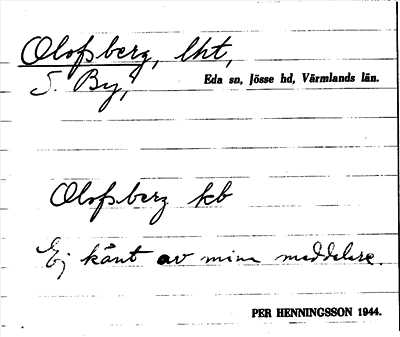 Olofsberg, lht,
S. By,
Eda sn, Jösse hd, Värmlands län.
Olofsberg kb
Ej känt av mina meddelare.
PER HENNINGSSON 1944.